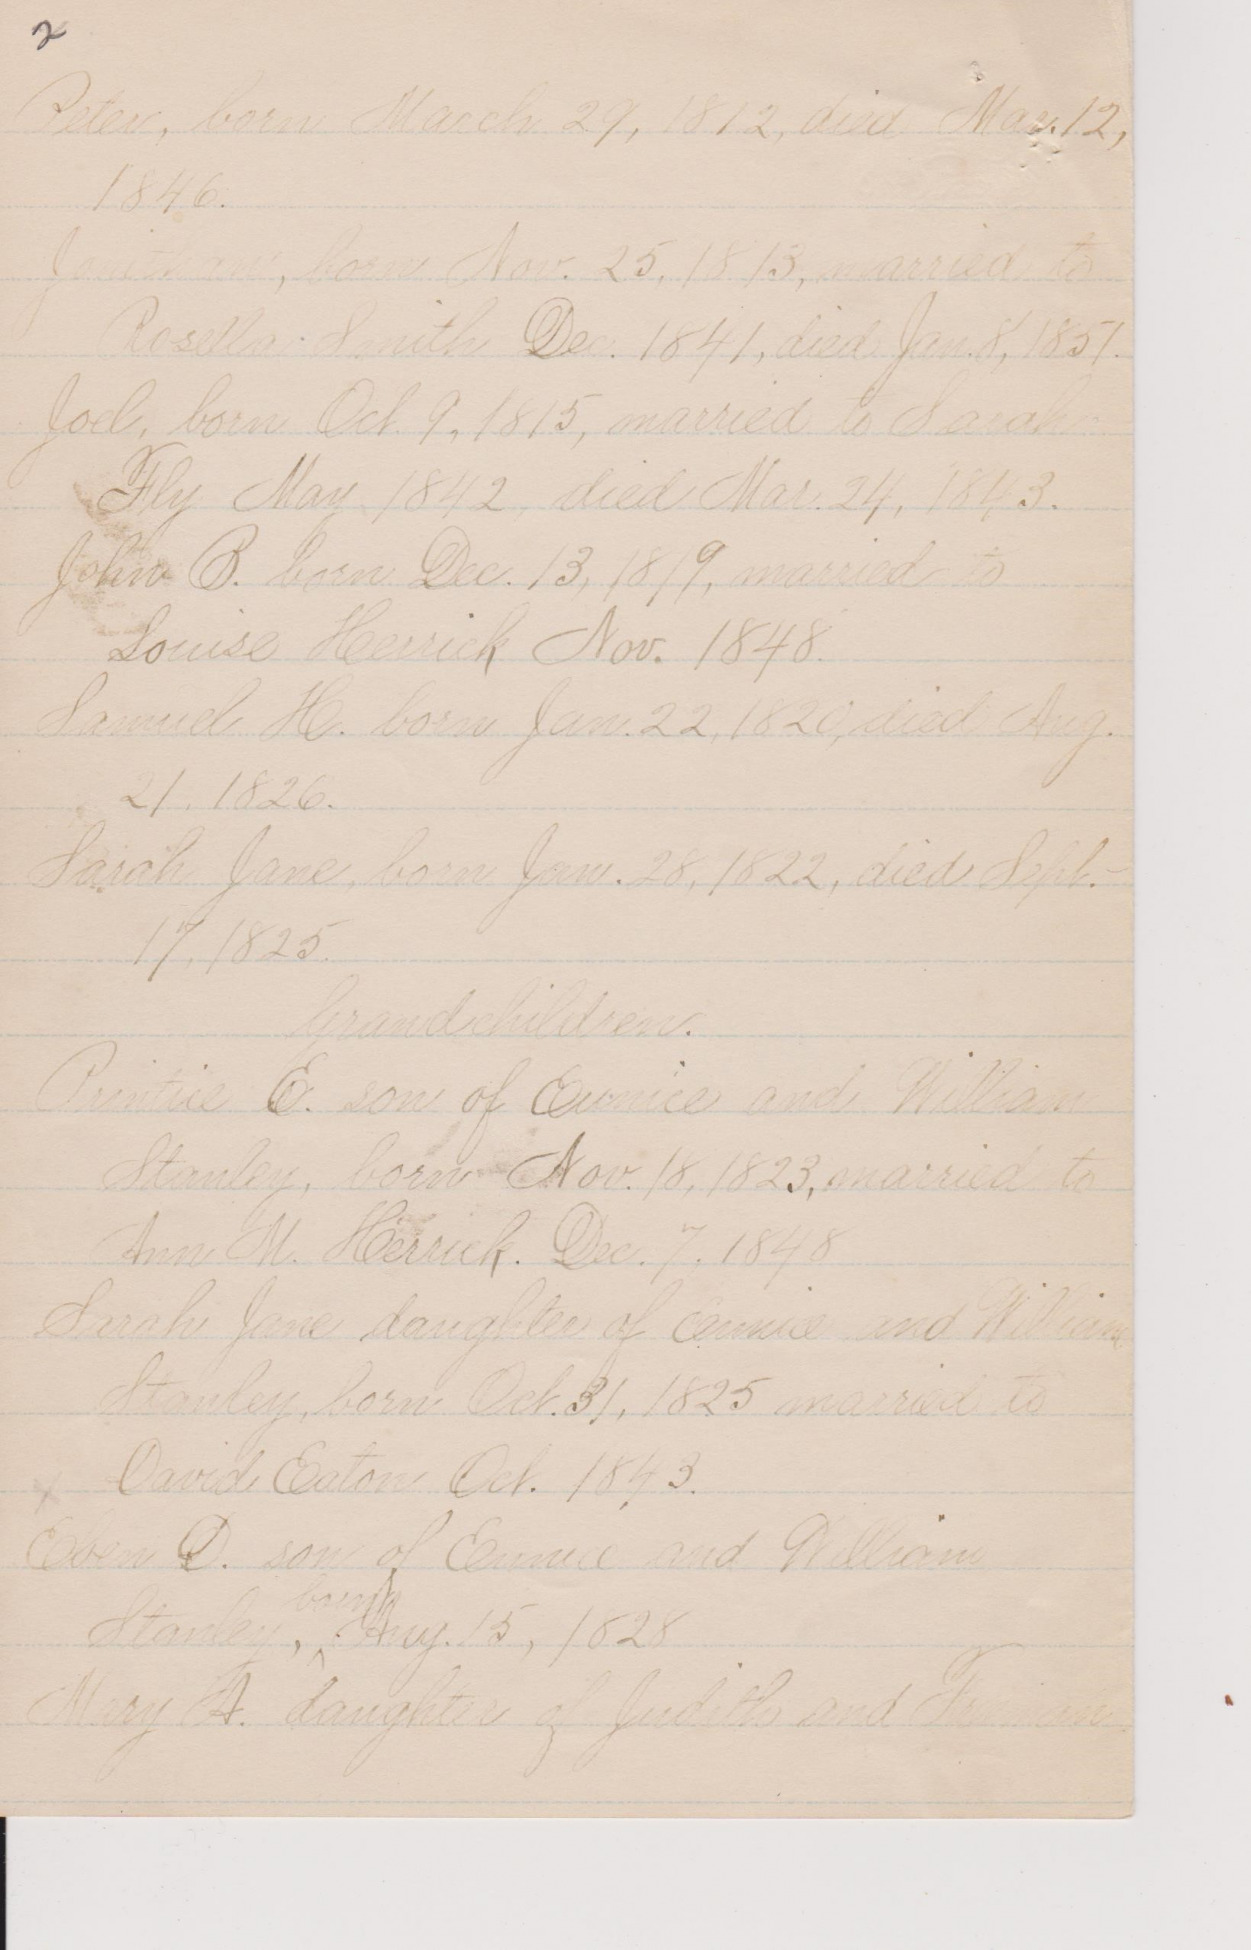 2
Peter, born March 29, 1812, died Mar. 12,
1846.
born Nov. 25, 1813, married to
Rosella Smith Dec. 1841, died Jan. 8, 1851.
Joel, born Oct. 9, 1815, married to Sarah
Fly May 1842, died Mar. 24, 1843.
John B. born Dec. 13, 1819, married to
Louise Herrick Nov. 1848.
Samuel H. born Jan. 22, 1820, died Aug.
21, 1826.
Sarah Jane, born Jan. 28, 1822, died Sept.
17, 1825.
Grandchildren.
Prentice E. son of Eunice and William
Stanley, born Nov. 18, 1823, married to
Ann M. Herrick. Dec. 7, 1848
Sarah Jane daughter of Eunice and William
Stanley, born Oct. 31, 1825 married to
David Eaton Oct. 1843.
Eben D. son of Eunice and William
Stanley, born Aug. 15, 1828
Mary A. daughter of Judith and Freeman